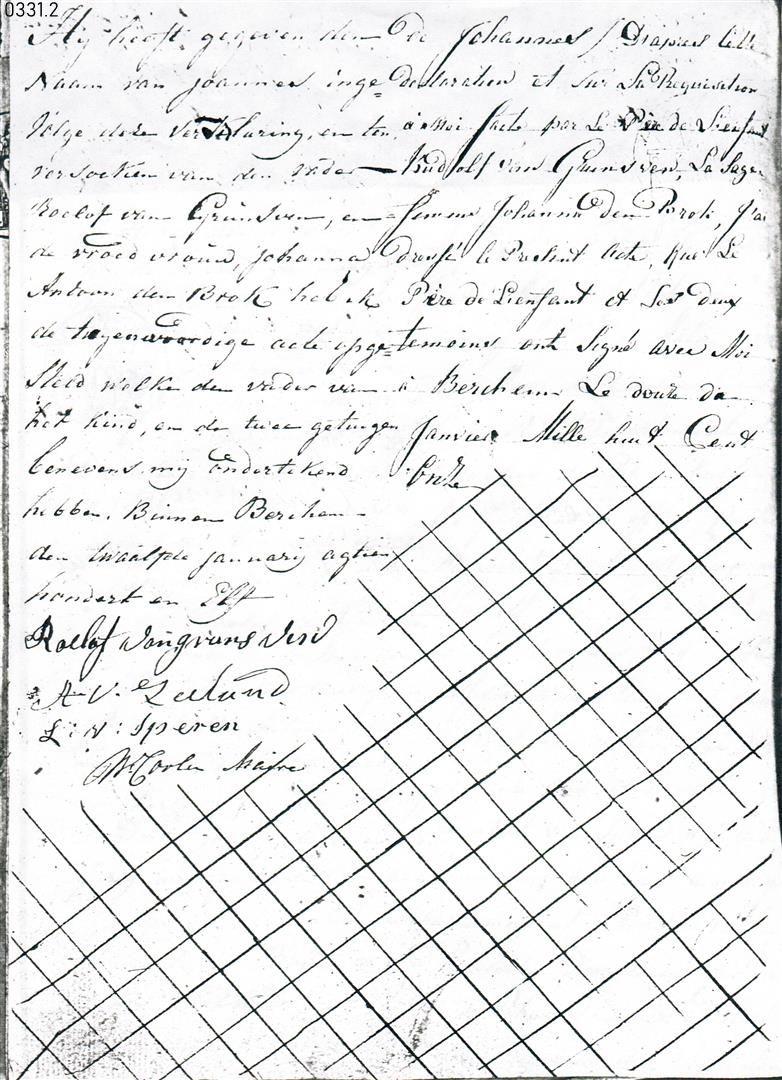 0331.2
Hij heeft gegeven den
Naam van Joannes inge=
volge deze verklaring, en ten
versoeken van den vader
Roelof van Grunsven, en
de vroed vrouw, Johanna
Antoon den Brok heb ik
de tegenwoordige acte opge=
steld welke den vader van
het kind, en de twee getuigen
benevens mij ondertekend
hebben. Binnen Berchem
den twaalfde januarij agtien
hondert en Elf
Roelof van grunsven
A. V. Zeeland
L: V: Iperen
Maire
de Johannes / D'apries cette
declaration et sur La Requisition
à Moi faite par Le Père de L'enfant
Rudolf van Grunsven, La Sage
femme Johanna den Brok, J'ai
dressé le Présent Acte, Que Le
Père de L'enfant et Les deux
temoins ont Signé avec Moi
à Berchem Le douze de
Janvier Mille huit Cent
Onze